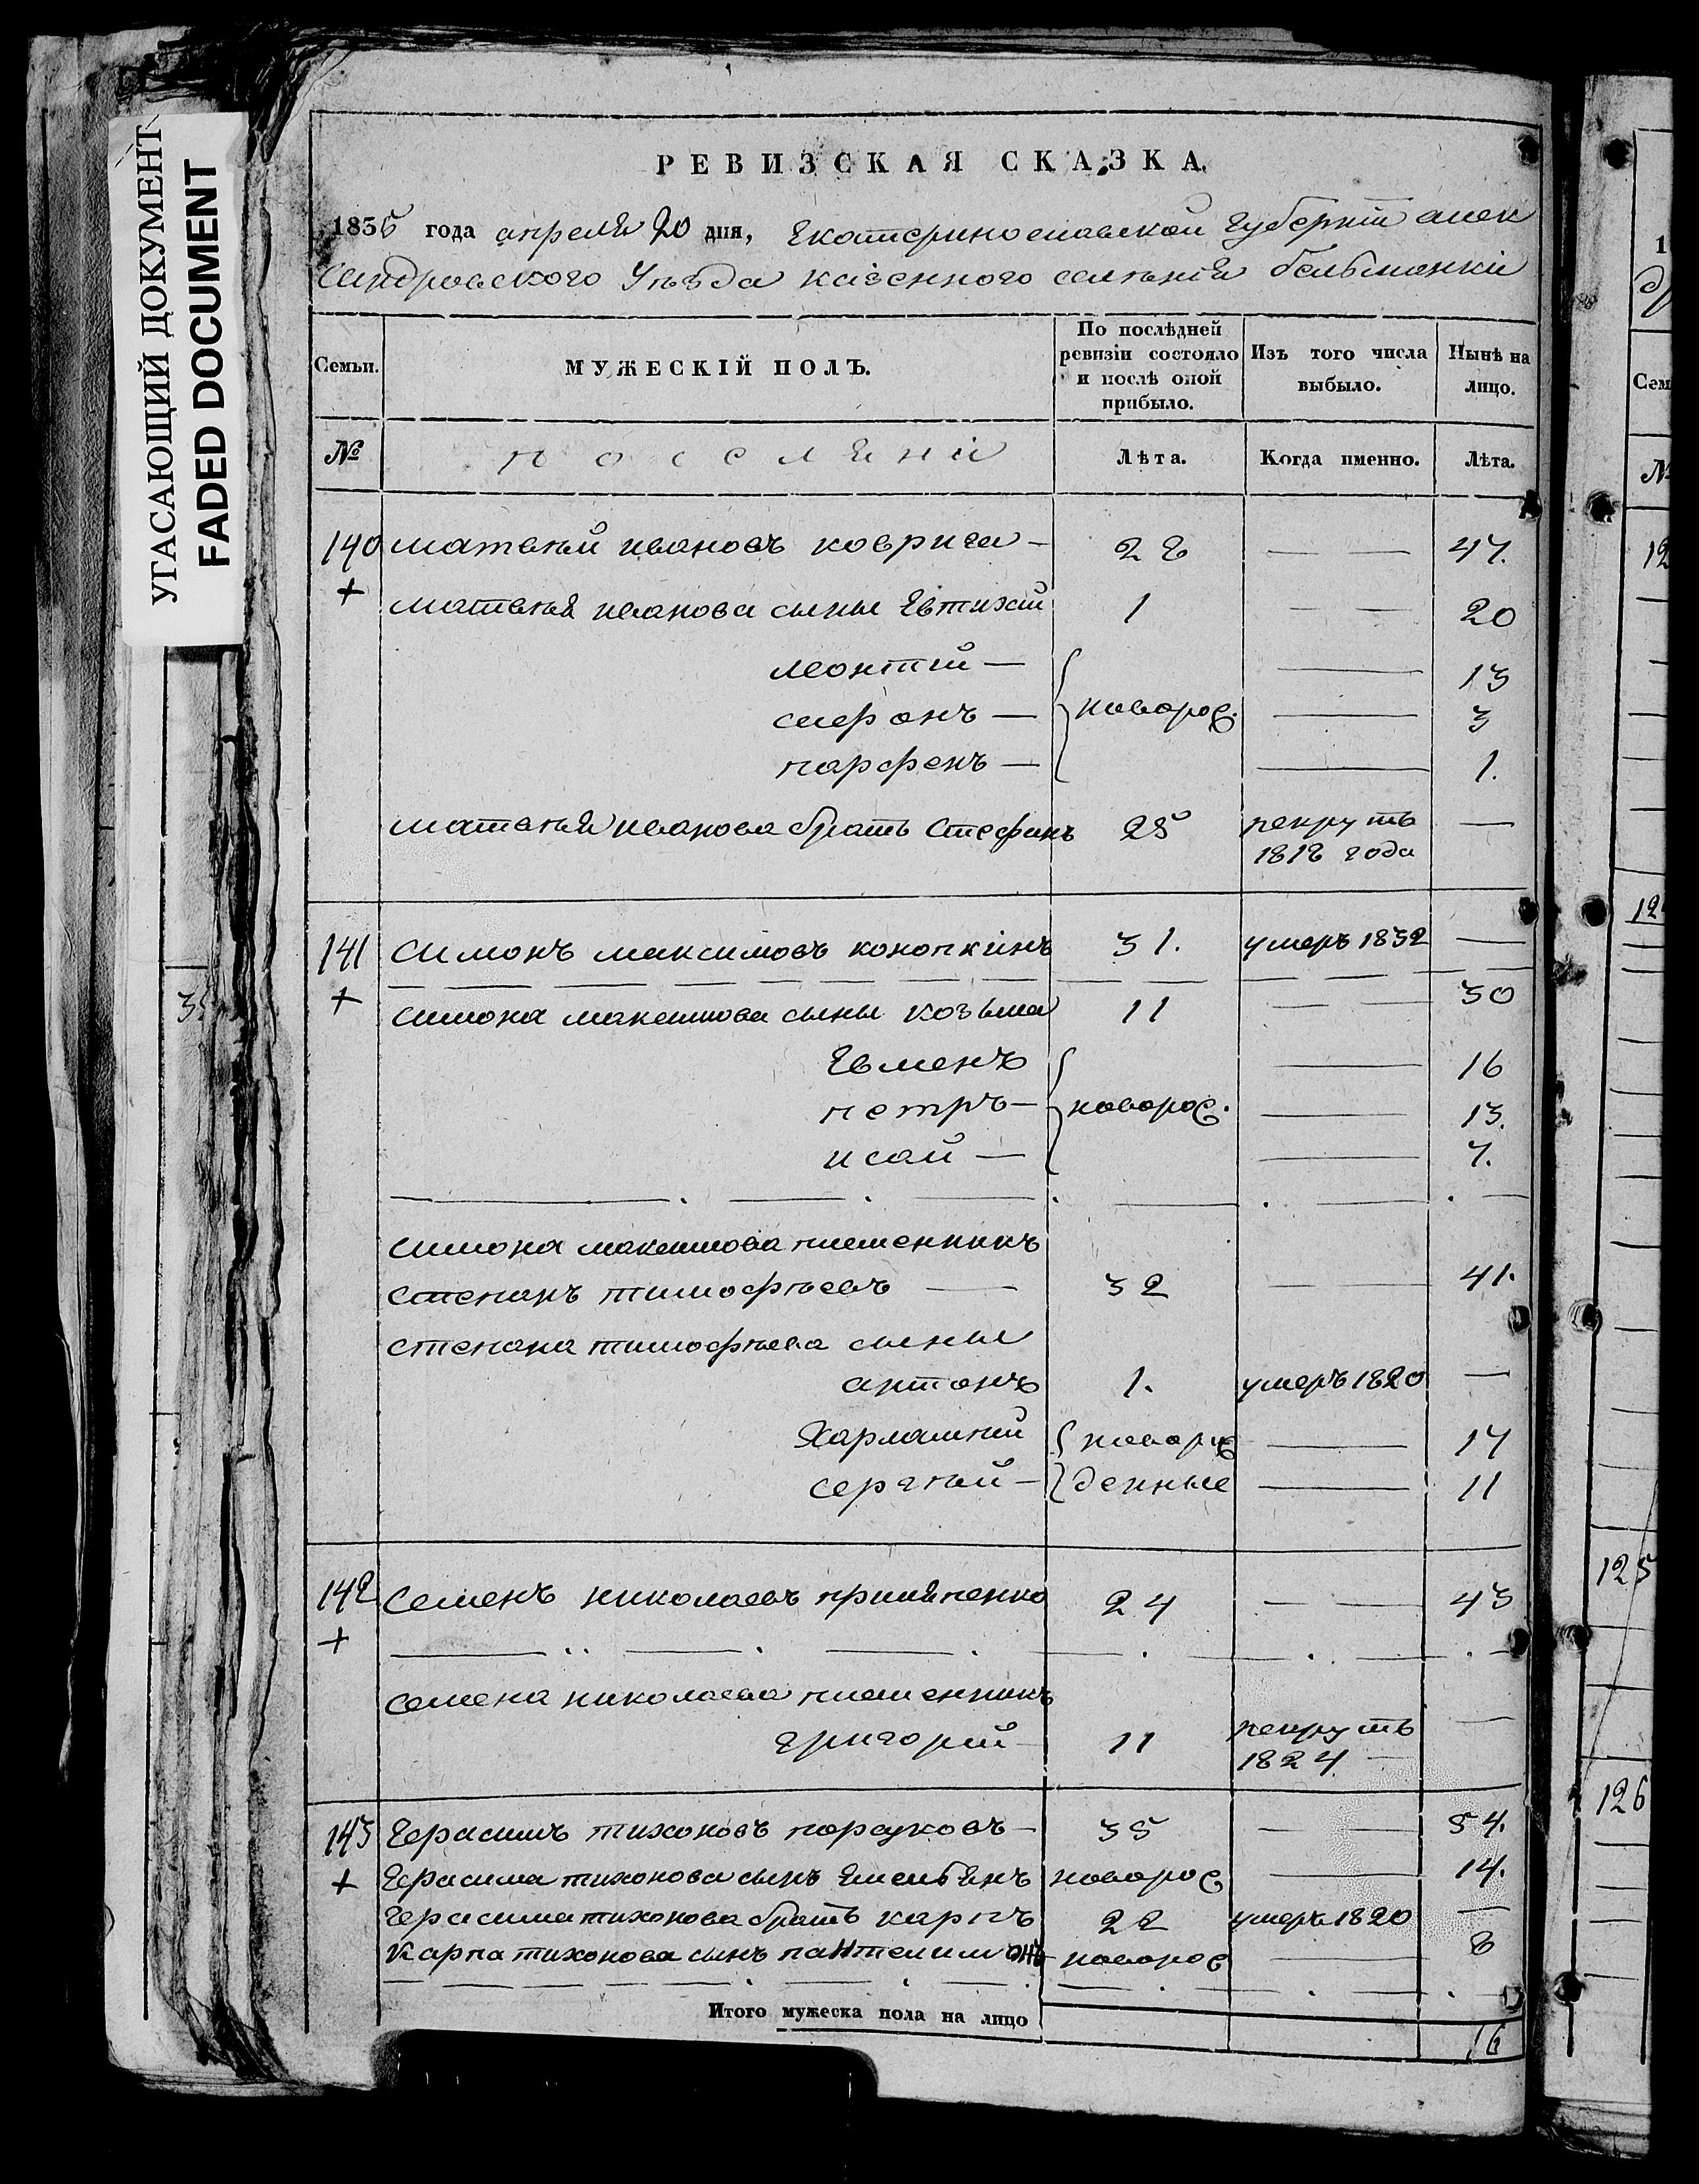 УГАСАЮЩИЙ ДОКУМЕНТ
FADED DOCUMENT
РЕВИЗСКАЯ СКАЗКА.
1835 года апреля 20 дня, Екатеринославской Губернии алек
сандровского Уѣзда казенного селения бельманки
Семьи. МУЖЕСКІЙ ПОЛЪ. По послѣдней ревизіи состояло и послѣ оной прибыло. Изъ того числа выбыло. Нынѣ на лицо.
№ поселяни Лѣта. Когда именно. Лѣта.
140 матвѣй ивановъ коврига — 28 — — 47.
+ матвѣя иванова сыны Евтихий 1 — — 20
леонтий — — 13
сафонъ — новорож. — 3
парфенъ — — 1.
матвѣя иванова братъ Стефанъ 25 рекрутъ —
1818 года
141 Симонъ максимовъ конопкинъ 31. умеръ 1832 —
+ симона максимова сыны козьма 11 — — 30
Евменъ — 16
петръ — новорож. — 13.
исай — — 7.
симона максимова племенникъ
степанъ тимофѣевъ — 32 — 41.
степана тимофѣева сыны
антонъ 1. умеръ 1820 —
Харлампий новорож — 17
сергѣй — денные — 11
142 Семенъ николаевъ 24 — — 43
+
семена николаева племенникъ
григорий 11 рекрутъ —
1824
143 Герасимъ тихоновъ порсуковъ — 35 — — 54.
+ Герасима тихонова сынъ Емельянъ новорож — 14.
герасима тихонова братъ карпъ 22 умеръ 1820 —
Карпа тихонова сынъ пантелимонъ новорож — 8
Итого мужеска пола на лицо 16
12
12
125
126